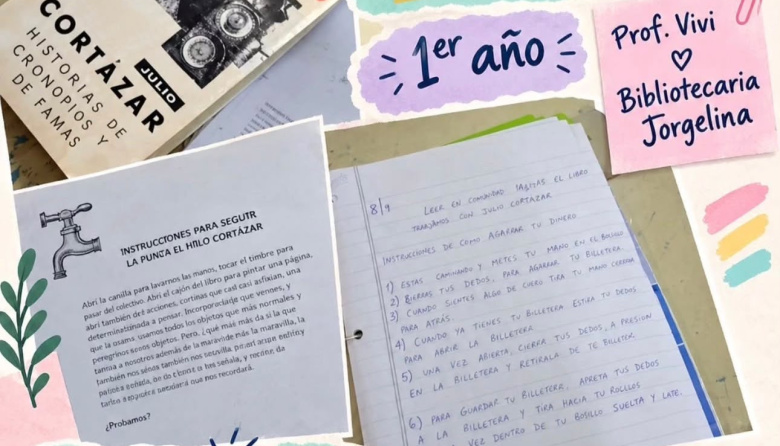 CORTÁZAR
JULIO
HISTORIAS DE
CRONOPIOS Y
DE FAMAS
1er año
Prof. Vivi
Bibliotecaria
Jorgelina
INSTRUCCIONES PARA SEGUIR
LA PUNZA EL HILO CORTÁZAR
Abrí la canilla para lavarnos las manos, tocar el timbre para
pasar del colectivo. Abrí el cajón del libro para pintar una página,
abrí también det acciones, cortinas que casi asfixian, una
a pensar.
que la osama usamos todos los objetos que más normales y
peregrinos sonos objetos. Pero, ¿qué maé más da si la que
a nosotros además de la maravilla, la
también nos
que nos recordará.
¿Probamos?
8/9 LEER EN COMUNIDAD EL LIBRO
TRABAJAMOS CON JULIO CORTAZAR
INSTRUCCIONES DE COMO AGARRAR TU DINERO
1) ESTAS CAMINANDO Y METES TU MANO EN EL BOLSILLO
2) TUS DEDOS, PARA AGARRAR TU BILLETERA
3) CUANDO SIENTES ALGO DE CUERO TIRA TU MANO CERRADA
PARA ATRÁS.
4) CUANDO YA TIENES TU BILLETERA ESTIRA TU DEDOS
PARA ABRIR LA BILLETERA
5) UNA VEZ ABIERTA, CIERRA TUS DEDOS, A PRESION
EN LA BILLETERA Y RETIRALA DE TE
6) PARA GUARDAR TU BILLETERA, APRETA TUS DEDOS
A LA BILLETERA Y TIRA HACIA TU
VEZ DENTRO DE TU BOSILLO SUELTA Y LATE.